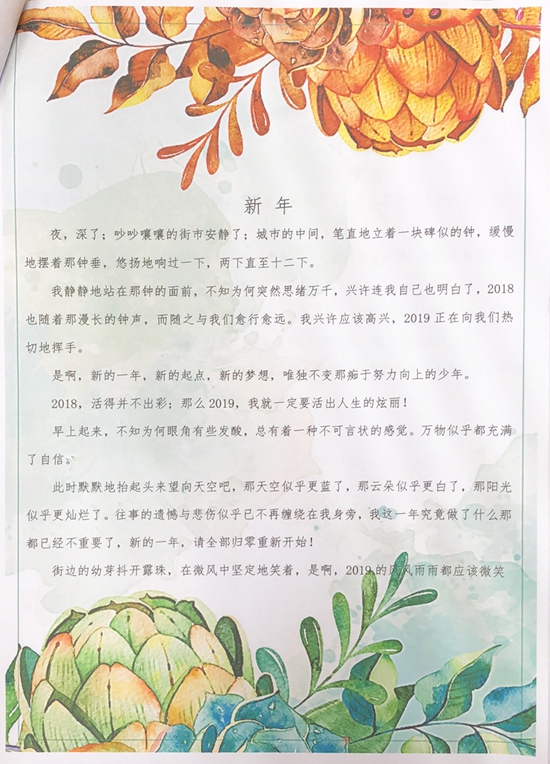 新 年
夜，深了；吵吵嚷嚷的街市安静了；城市的中间，笔直地立着一块碑似的钟，缓慢
地摆着那钟垂，悠扬地响过一下，两下直至十二下。
我静静地站在那钟的面前，不知为何突然思绪万千，兴许连我自己也明白了，2018
也随着那漫长的钟声，而随之与我们愈行愈远。我兴许应该高兴，2019 正在向我们热
切地挥手。
是啊，新的一年，新的起点，新的梦想，唯独不变那痴于努力向上的少年。
2018，活得并不出彩；那么 2019，我就一定要活出人生的炫丽！
早上起来，不知为何眼角有些发酸，总有着一种不可言状的感觉。万物似乎都充满
了自信。
此时默默地抬起头来望向天空吧，那天空似乎更蓝了，那云朵似乎更白了，那阳光
似乎更灿烂了。往事的遗憾与悲伤似乎已不再缠绕在我身旁，我这一年究竟做了什么那
都已经不重要了，新的一年，请全部归零重新开始！
街边的幼芽抖开露珠，在微风中坚定地笑着，是啊，2019 的风风雨雨都应该微笑